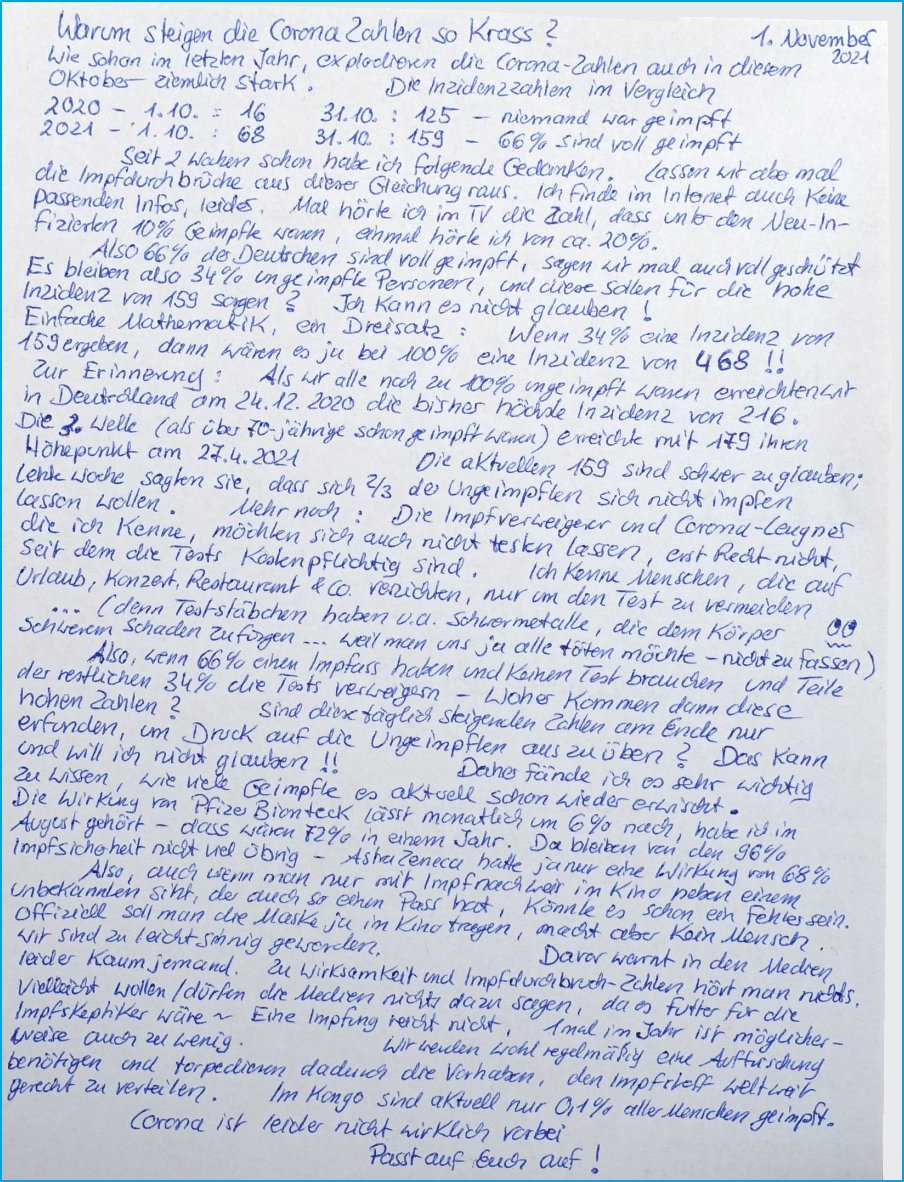 Warum steigen die Corona Zahlen so Krass ? 1. November
2021
Wie schon im letzten Jahr, explodieren die Corona-Zahlen auch in diesem
Oktober ziemlich stark. Die Inzidenzzahlen im Vergleich
2020 - 1.10. : 16 31.10. : 125 - niemand war geimpft
2021 - 1.10. : 68 31.10. : 159 - 66% sind voll geimpft
Seit 2 Wochen schon habe ich folgende Gedanken. Lassen wir aber mal
die Impfdurchbrüche aus dieser Gleichung raus. Ich finde im Internet auch Keine
passenden Infos, leider. Mal hörte ich im TV die Zahl, dass unter den Neu-In-
fizierten 10% Geimpfte waren, einmal hörte ich von ca. 20%.
Also 66% der Deutschen sind voll geimpft, sagen wir mal auch voll geschützt
Es bleiben also 34% ungeimpfte Personen, und diese sollen für die hohe
Inzidenz von 159 sorgen ? Ich Kann es nicht glauben !
Einfache Mathematik, ein Dreisatz : Wenn 34% eine Inzidenz von
159 ergeben, dann wären es ja bei 100% eine Inzidenz von 468 !!
Zur Erinnerung : Als wir alle noch zu 100% ungeimpft waren erreichten wir
in Deutschland am 24.12.2020 die bisher höchste Inzidenz von 216.
Die 3. Welle (als über 70-jährige schon geimpft waren) erreichte mit 179 ihren
Höhepunkt am 27.4.2021 Die aktuellen 159 sind schwer zu glauben;
letzte Woche sagten sie, dass sich 2/3 der Ungeimpften sich nicht impfen
lassen wollen. Mehr noch : Die Impfverweigerer und Corona-Leugner
die ich Kenne, möchten sich auch nicht testen lassen, erst Recht nicht,
seit dem die Tests Kostenpflichtig sind. Ich Kenne Menschen, die auf
Urlaub, Konzert, Restaurant & Co. verzichten, nur um den Test zu vermeiden
... (denn Test-stäbchen haben u.a. Schwermetalle, die dem Körper
schweren Schaden zufügen ... weil man uns ja alle töten möchte - nicht zu fassen)
Also, wenn 66% einen Impfpass haben und Keinen Test brauchen und Teile
der restlichen 34% die Tests verweigern - Woher Kommen dann diese
hohen Zahlen ? Sind diese täglich steigenden Zahlen am Ende nur
erfunden, um Druck auf die Ungeimpften auszuüben ? Das Kann
und will ich nicht glauben !! Daher fände ich es sehr wichtig
zu wissen, wie viele Geimpfte es aktuell schon wieder erwischt.
Die Wirkung von Pfizer Bionteck lässt monatlich um 6% nach, habe ich im
August gehört - dass wären 72% in einem Jahr. Da bleiben von den 96%
Impfsicherheit nicht viel übrig - AstraZeneca hatte ja nur eine Wirkung von 68%
Also, auch wenn man nur mit Impfnachweis im Kino neben einem
unbekannten sitzt, der auch so einen Pass hat, Könnte es schon ein Fehler sein.
Offiziell soll man die Maske ja im Kino tragen, macht aber Kein Mensch.
wir sind zu leichtsinnig geworden. Davor warnt in den Medien
leider Kaum jemand. Zu Wirksamkeit und Impfdurchbruch-Zahlen hört man nichts.
Vielleicht wollen/dürfen die Medien nichts dazu sagen, da es Futter für die
Impfskeptiker wäre ~ Eine Impfung reicht nicht, 1 mal im Jahr ist möglicher-
weise auch zu wenig. Wir werden wohl regelmäßig eine Auffrischung
benötigen und torpedieren dadurch die Vorhaben, den Impfstoff weltweit
gerecht zu verteilen. Im Kongo sind aktuell nur 0,1% aller Menschen geimpft.
Corona ist leider nicht wirklich vorbei
Passt auf Euch auf !